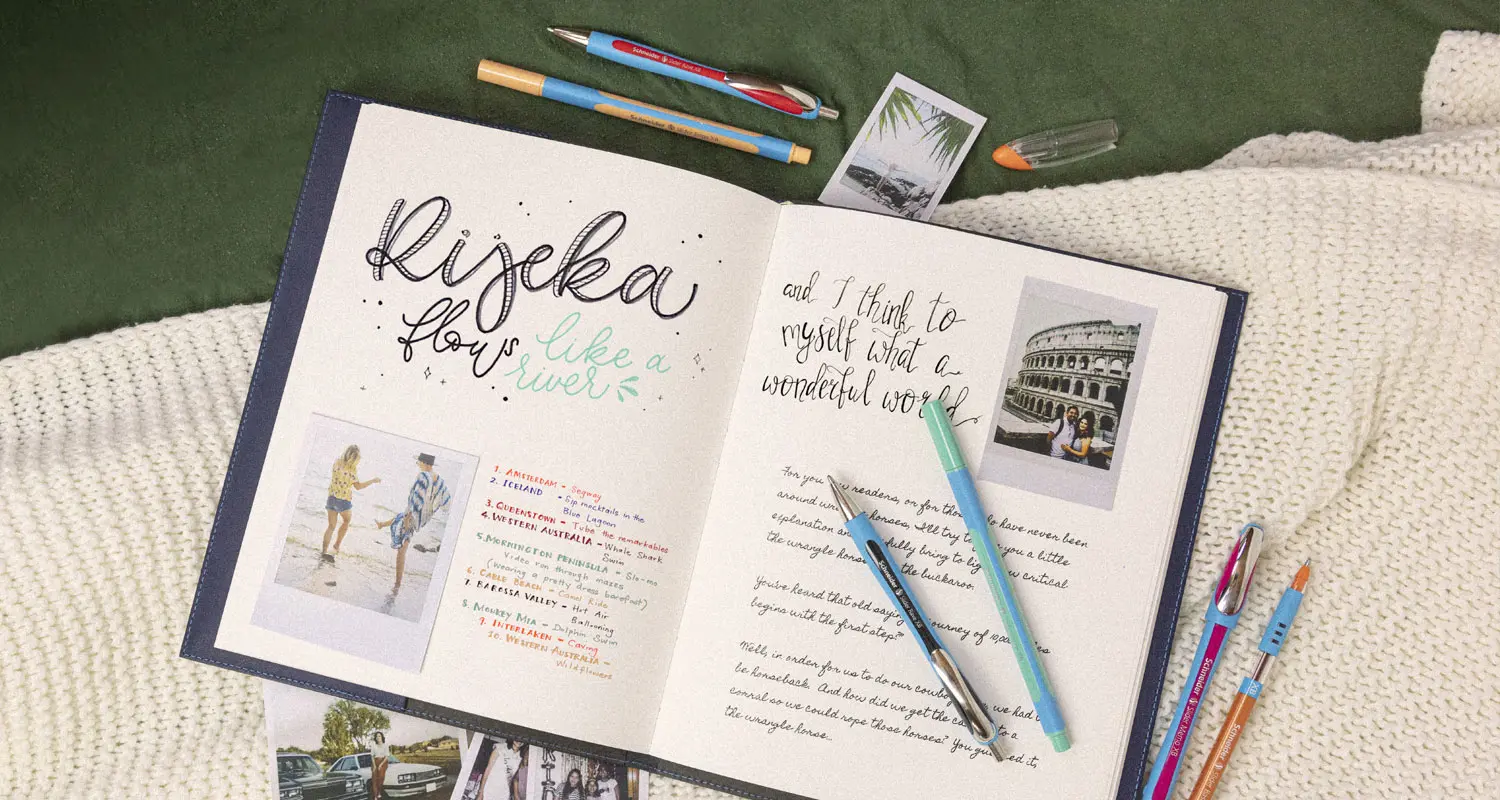 Schneider Slider Rave XB
Schneider Slider Edge XB
Rijeka
flows like a
river
1. AMSTERDAM - Segway
2. ICELAND - Sip mocktails in the
Blue Lagoon
3. QUEENSTOWN - Tube the remarkables
4. WESTERN AUSTRALIA - Whale Shark
Swim
5. MORNINGTON PENINSULA - Slo-mo
Video run through mazes
(wearing a pretty dress barefoot)
6. CABLE BEACH - Camel Ride
7. BAROSSA VALLEY - Hot Air
Ballooning
8. MONKEY MIA - Dolphin Swim
9. INTERLAKEN - Caving
10. WESTERN AUSTRALIA -
Wildflowers
and I think to
myself what a
wonderful world
For you readers, or for have never been
around horses, I'll try to you a little
explanation and bring to critical
the wrangle horse the buckaroo.
You've heard that old saying journey of
begins with the first step?"
Well, in order for us to do our we had
be horseback. And how did we get the to a
corral so we could rope those horses? You it,
the wrangle horse...
Schneider Slider Rave XB
Schneider Slider Memo XB
XB
Schneider